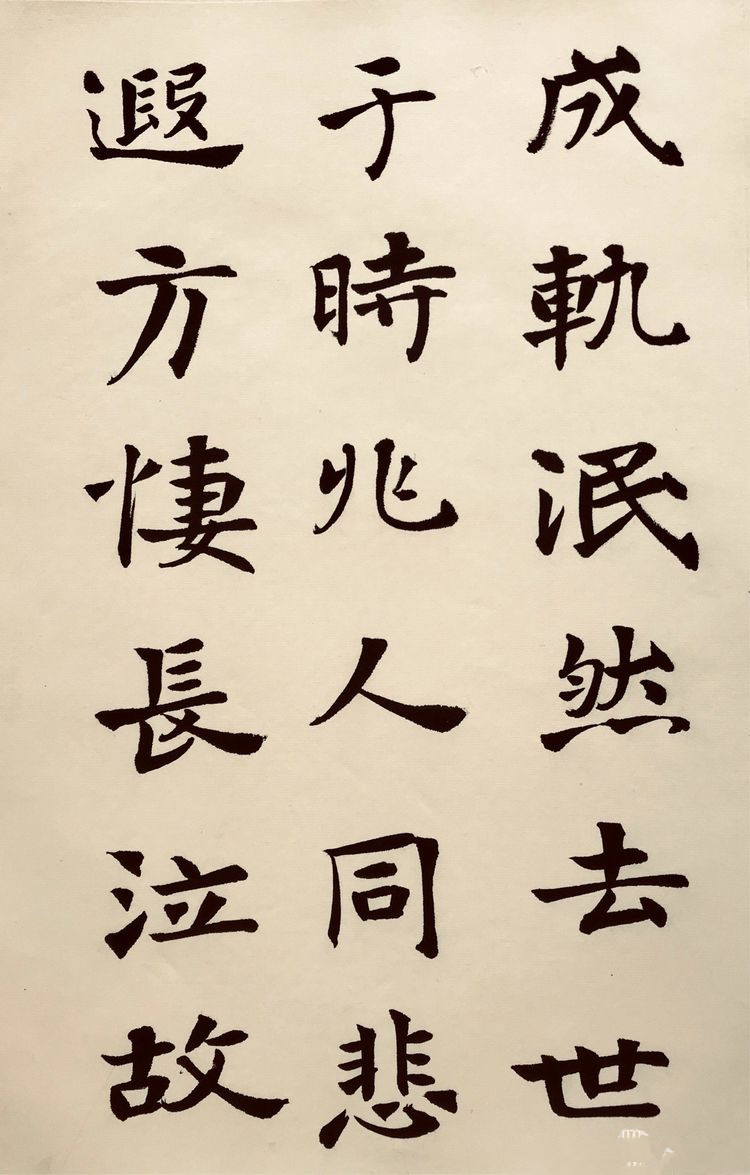 成軌泯然去世
于時兆人同悲
遐方悽長泣故